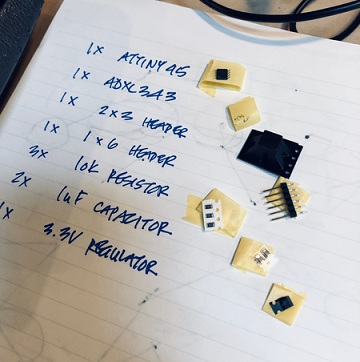 1x ATTINY45
1x ADXL343
1x 2x3 HEADER
1x 1x6 HEADER
3x 10K RESISTOR
2x 1uF CAPACITOR
1x 3.3V REGULATOR